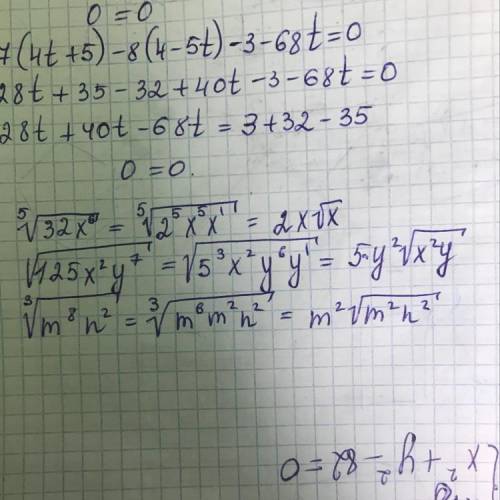 0 = 0
7(4t+5)-8(4-5t)-3-68t=0
28t+35-32+40t-3-68t=0
28t+40t-68t=3+32-35
0=0.
⁵√(32x⁶) = ⁵√(2⁵x⁵x¹) = 2x√x
√(125x²y⁷) = √(5³x²y⁶y¹) = 5·y²√(x²y)
³√(m⁸n²) = ³√(m⁶m²n²) = m²√(m²n²)
x²+y²-82=0